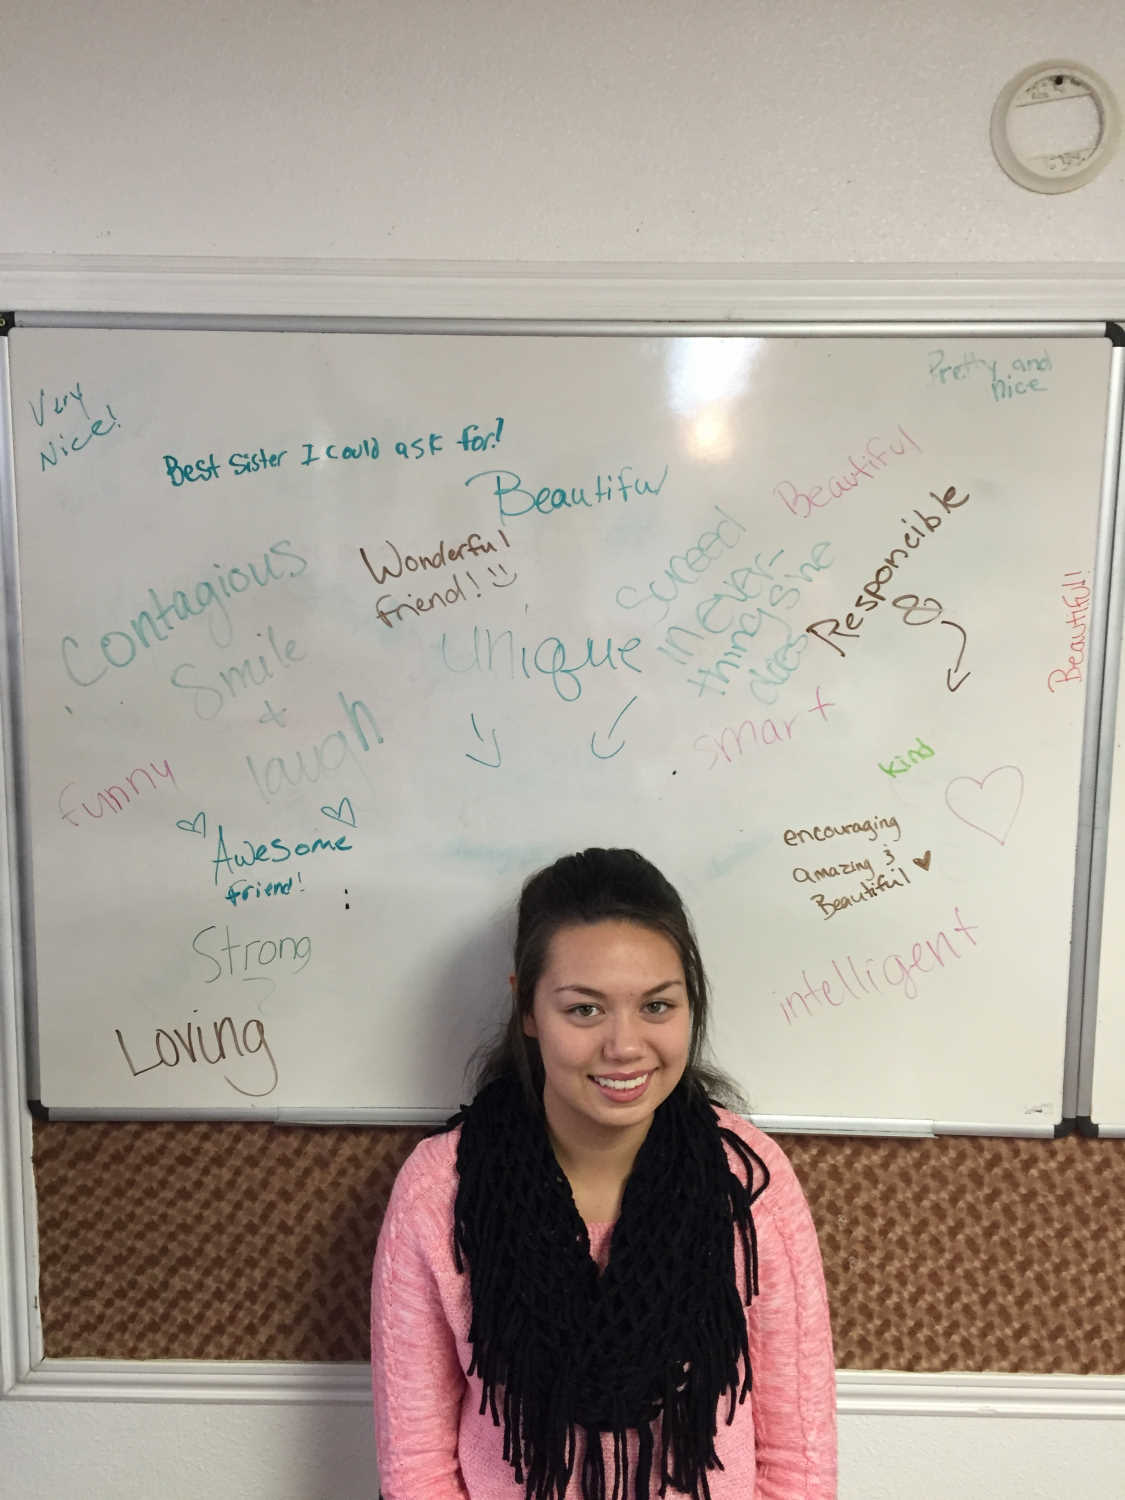 Pretty and
nice
Very
Nice!
Best Sister I could ask for!
Beautiful
Beautiful
Wonderful
friend!
Contagious
Smile
+
laugh
Unique
Suceed
in ever-
thing sine
does
Responcible
&
Beautiful!
smart
funny
kind
Awesome
friend!
encouraging
amazing &
Beautiful
Strong
intelligent
Loving